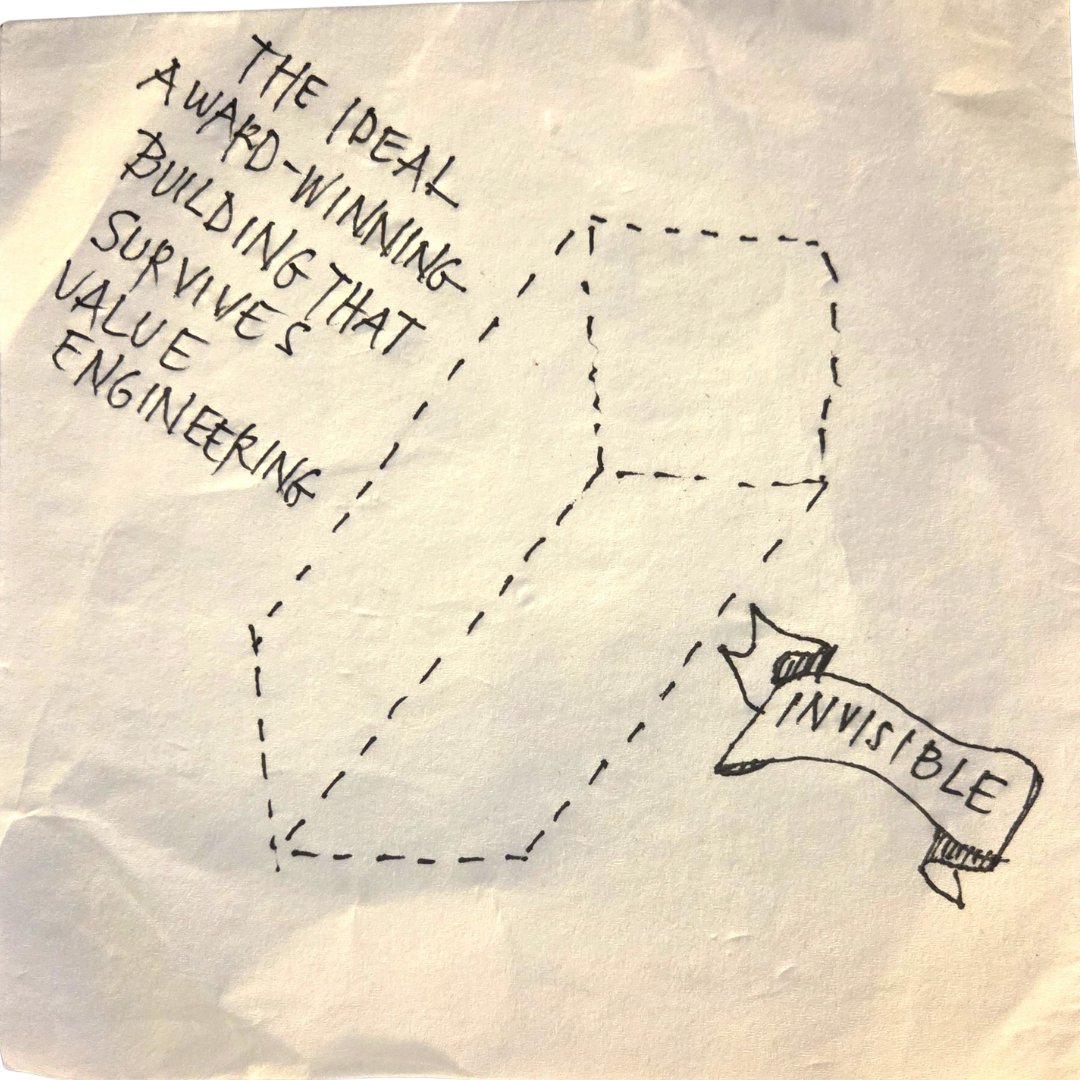 THE IDEAL
AWARD-WINNING
BUILDING THAT
SURVIVES
VALUE
ENGINEERING
INVISIBLE